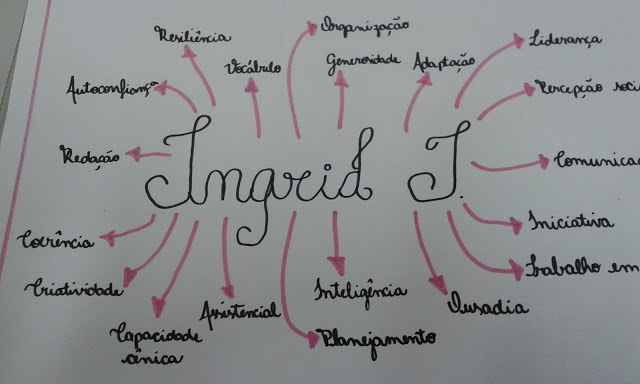 Organização
Resiliência
Liderança
Vocábulo
Generosidade
Adaptação
Autoconfiança
Percepção soci
Redação
Ingrid T.
Comunicaç
Coerência
Iniciativa
Trabalho em
Criatividade
Assistencial
Inteligência
Ousadia
Capacidade
cênica
Planejamento